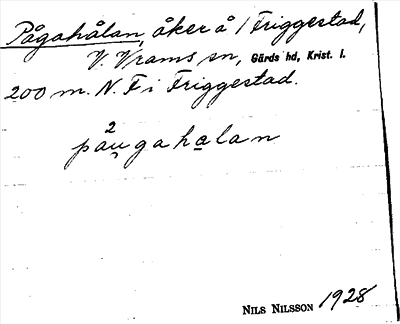 Pågahålan, åker å 1 Friggestad,
V. Vrams sn, Gärds hd, Krist. l.
200 m. N. F i Friggestad.
2
pau̯gahalan
NILS NILSSON 1928